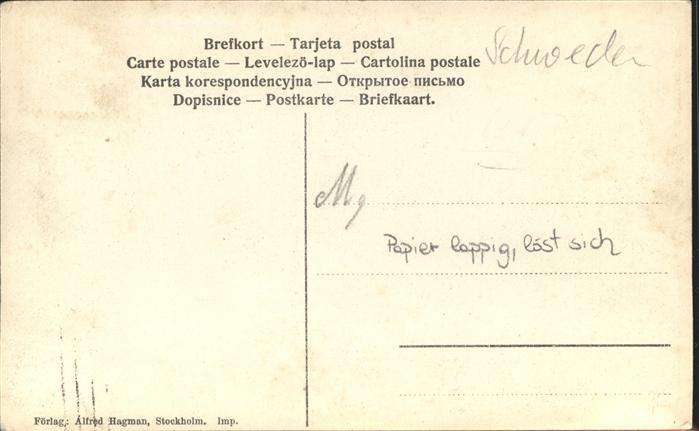 Brefkort — Tarjeta postal
Carte postale — Levelező-lap — Cartolina postale
Karta korespondencyjna — Открытое письмо
Dopisnice — Postkarte — Briefkaart.
Schweden
Mg
Papier lappig, löst sich
Förlag: Alfred Hagman, Stockholm. Imp.